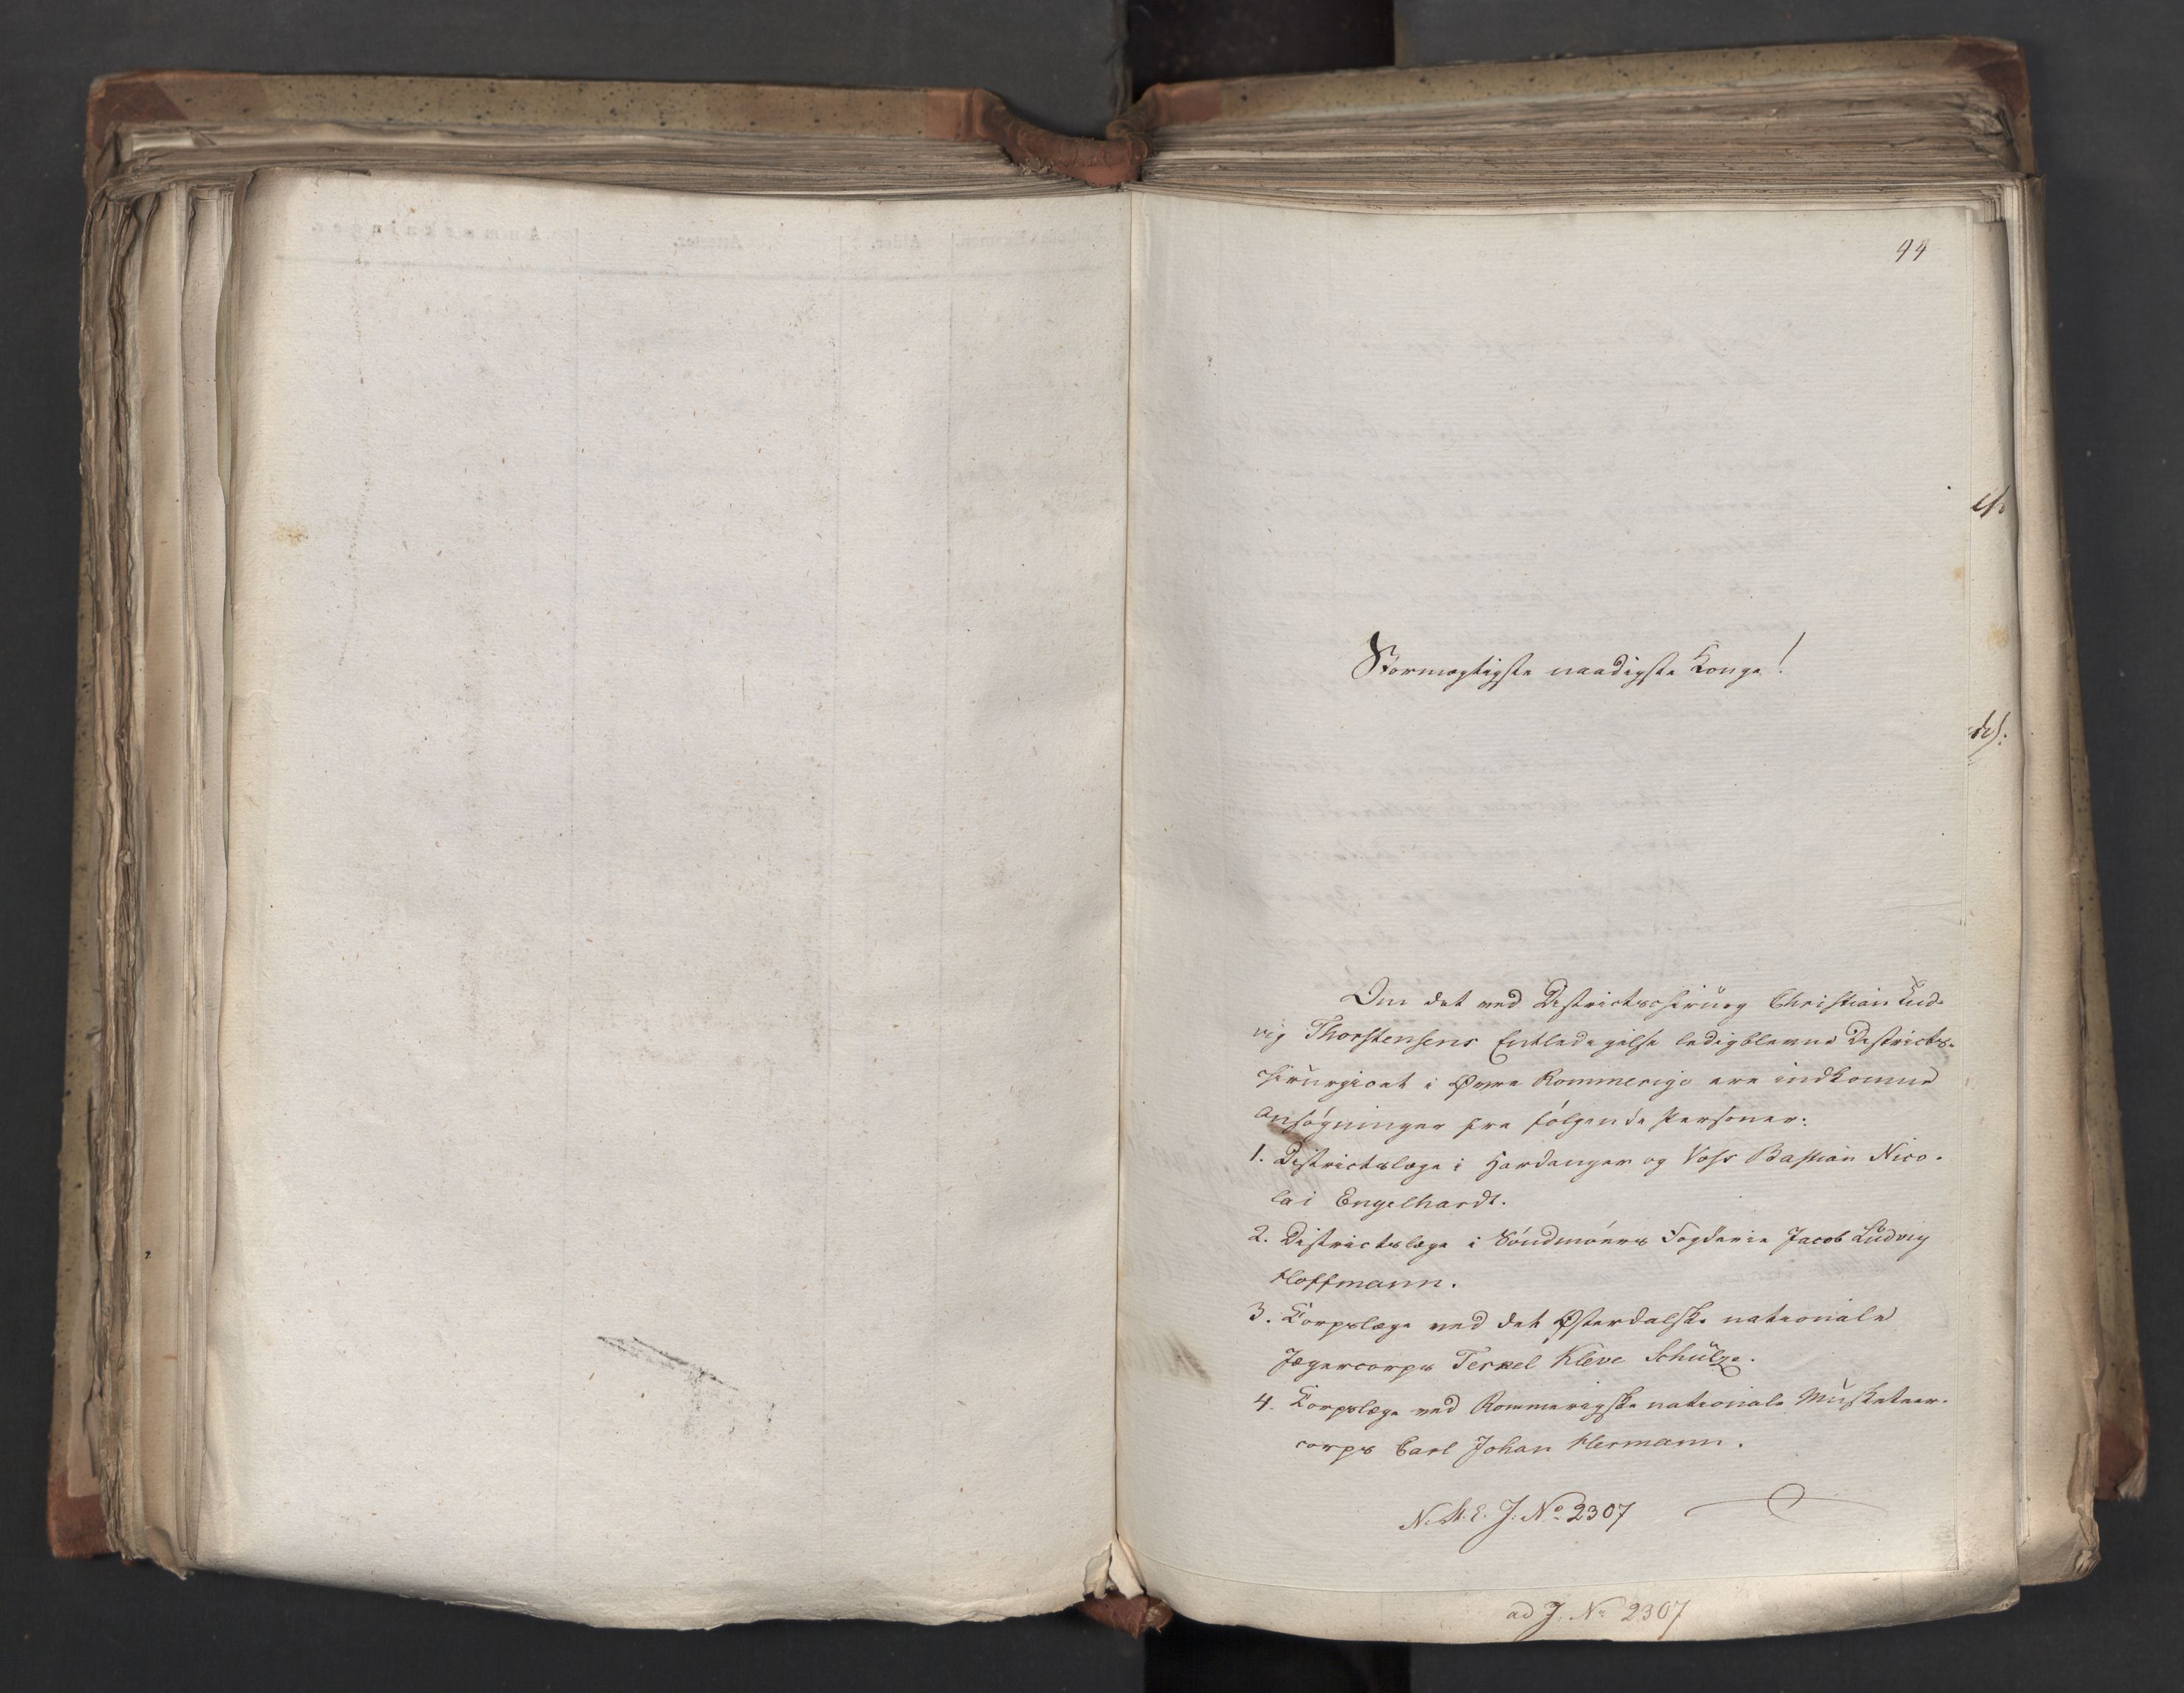 94
Stormægtigste naadigste Konge!
Om det ved Districtschirurg Christian Lud-
vig Thorstensens Entledigelse ledigblevne Districts-
chirurgicat i Øvre Rommerige ere indkomne
Ansøgninger fra følgende Personer:
1. Districtslæge i Hardanger og Voss Bastian Nico-
lai Engelhardt.
2. Districtslæge i Søndmøers Fogderie Jacob Ludvig
Hoffmann.
3. Korpslæge ved det Østerdalske nationale
Jægercorps Terkel Kleve Schulze.
4. Korpslæge ved Rommerigske nationale Musketeer-
corps Carl Johan Hermann.
J. No 2307
ad J. No 2307